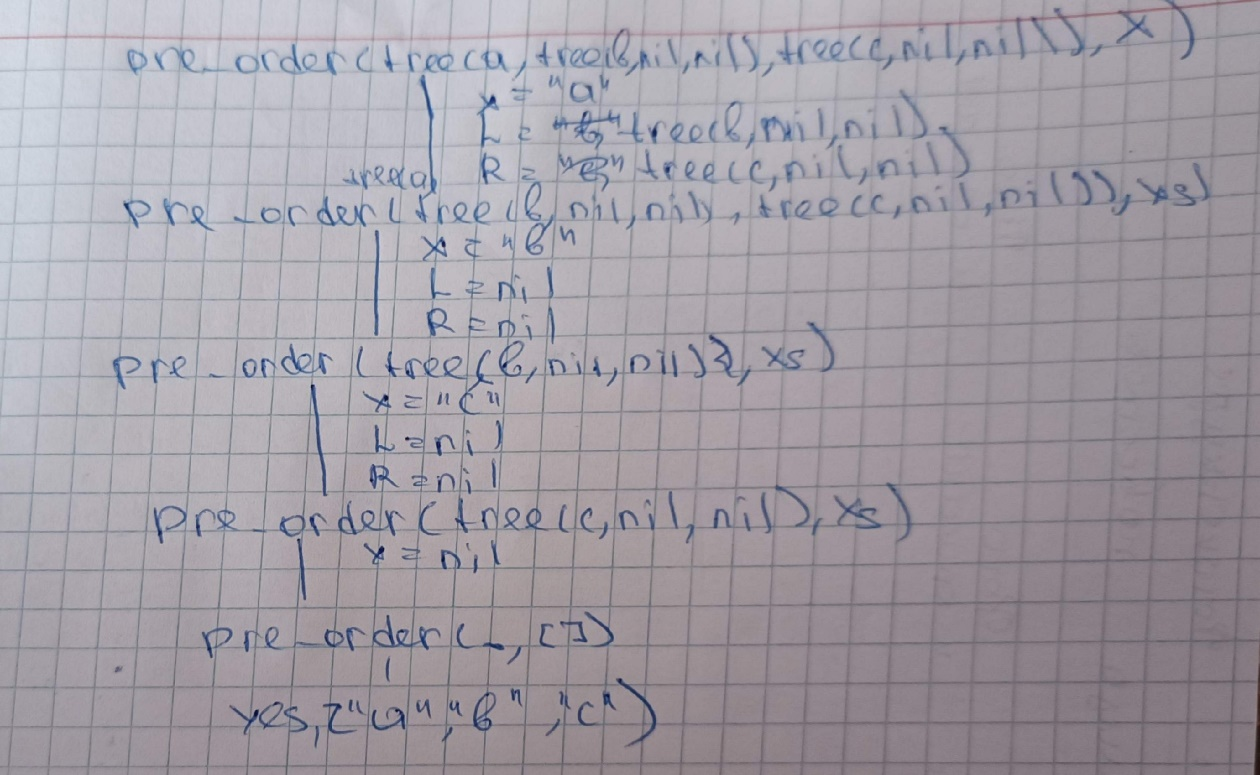 pre_order(tree(a, tree(b,nil,nil), tree(c,nil,nil)), X)
x = "a"
L = tree(b, nil, nil),
R = tree(c, nil, nil)
tree(a)
pre_order(tree(b, nil, nil), tree(c, nil, nil)), xs)
x = "b"
L = nil
R = nil
pre_order (tree(b, nil, nil)), xs)
x = "c"
L = nil
R = nil
pre_order(tree(c, nil, nil), xs)
x = nil
pre_order(_, [])
yes, ["a", "b", "c")